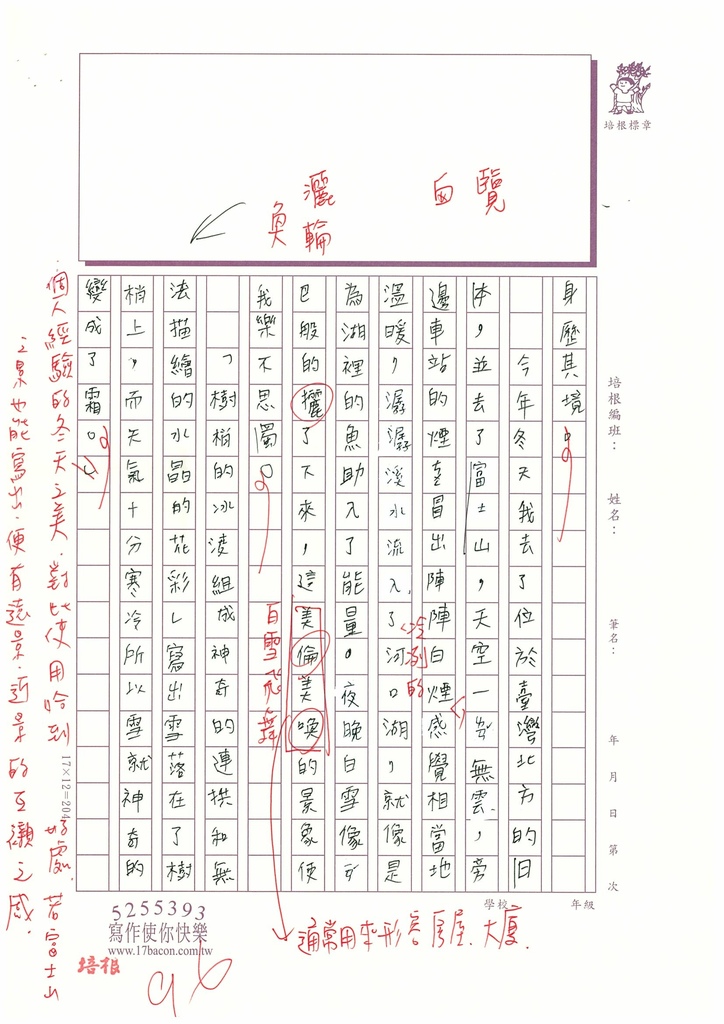 培根標章
灑
輪
奐
鹵
覽
身歷其境。
今年冬天我去了位於臺灣北方的日
本,並去了富士山,天空一片無雲,旁
邊車站的煙囪冒出陣陣白煙感覺相當地
溫暖,潺潺溪水流入了河口湖,就像是
為湖裡的魚助入了能量。夜晚白雪像
巴般的攦了下來,這美倫美喚的景象使
我樂不思蜀。
「樹梢的冰淩組成神奇的連拱和無
法描繪的水晶的花彩」寫出雪落在了樹
梢上,而天氣十分寒冷所以雪就神奇的
變成了霜。
冷冽的
白雪飛舞
通常用來形容房屋、大廈.
個人經驗的冬天之美.對比使用恰到好處.若富士山
之景也能寫出.便有遠景.近景的互襯之感.
培根編班:
姓名:
筆名:
年 月 日 第 次
17×12=204
學校
年級
5255393
寫作使你快樂
www.17bacon.com.tw
培根
96